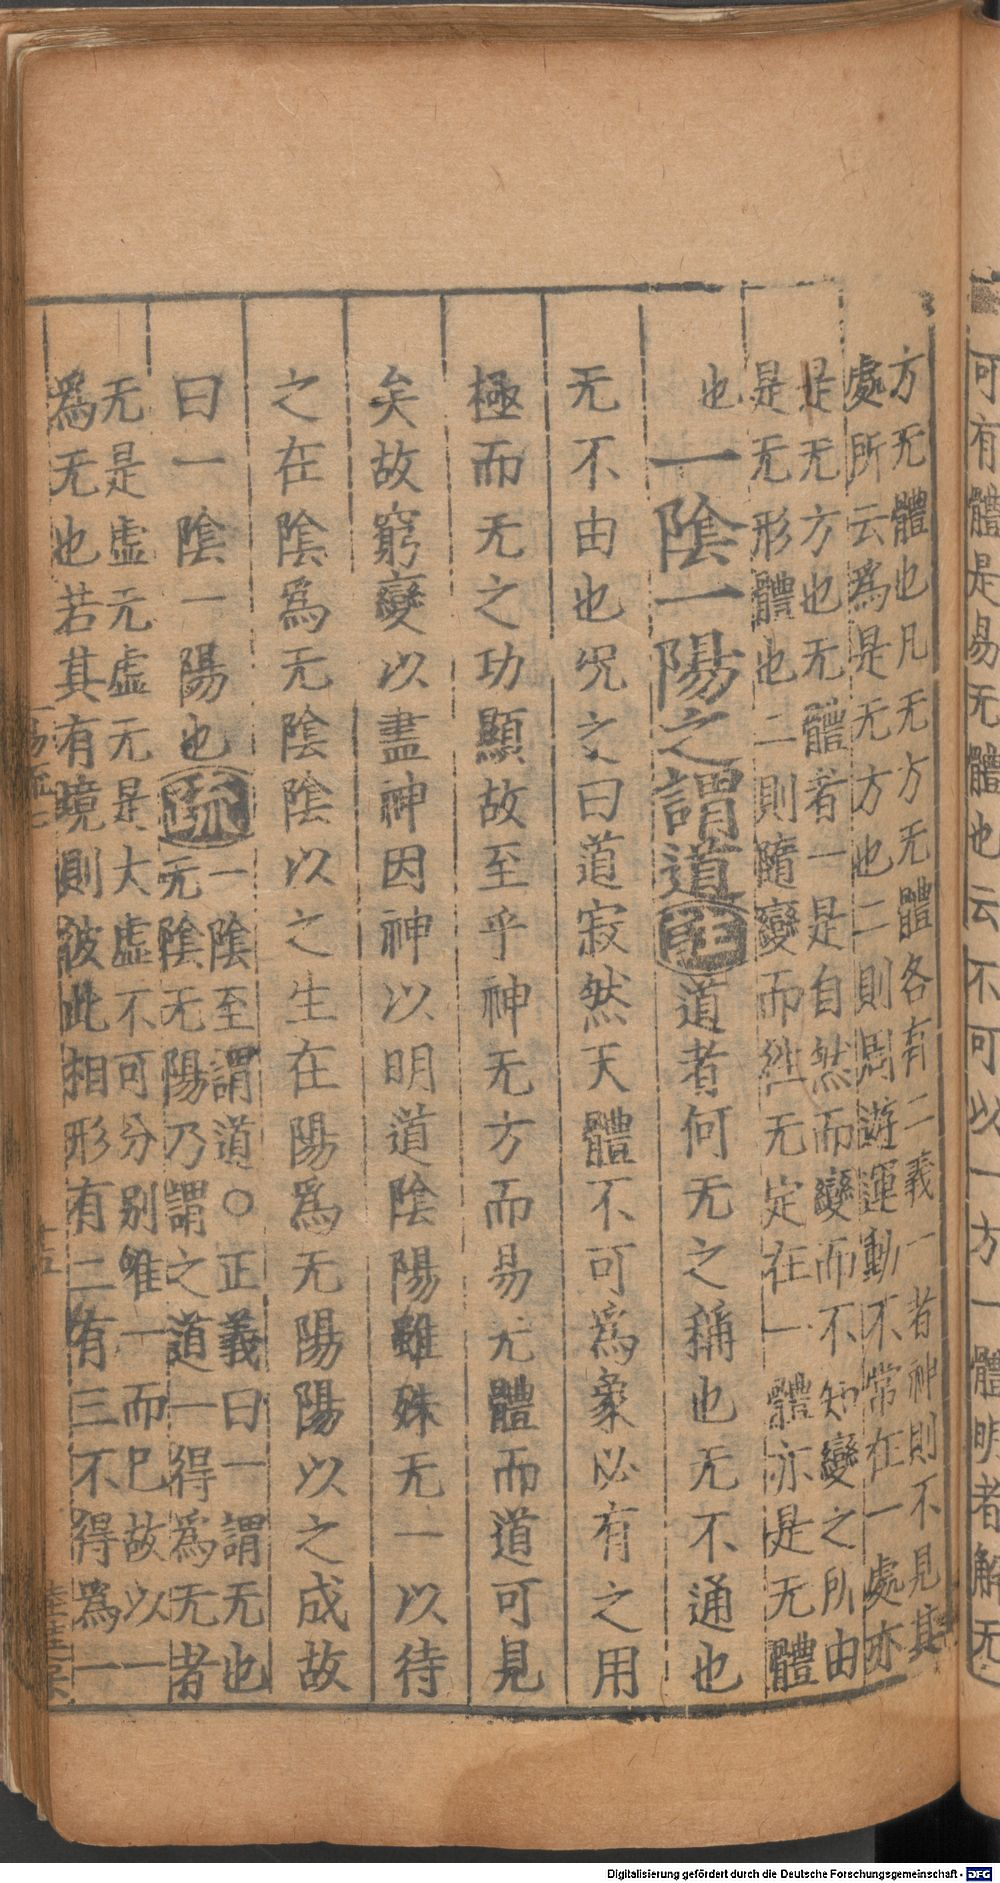 可有體是易无體也云不可以一方一體明者解无
方无體也凡无方无體各有二義一者神則不見其
處所云爲是无方也二則周遊運動不常在一處亦
是无方也无體者一是自然而變而不知變之所由
是无形體也二則隨變而往无定在一體亦是无體
也一陰一陽之謂道註道者何无之稱也无不通也
无不由也況之曰道寂然天體不可爲象必有之用
極而无之功顯故至乎神无方而易无體而道可見
矣故窮變以盡神因神以明道陰陽雖殊无一以待
之在陰爲无陰陰以之生在陽爲无陽陽以之成故
曰一陰一陽也疏
一陰至謂道○正義曰一謂无也
无陰无陽乃謂之道一得爲无者
无是虛无虛无是大虛不可分别唯一而巳故以一
爲无也若其有境則彼此相形有二有三不得爲一
Digitalisierung gefördert durch die Deutsche Forschungsgemeinschaft - DFG